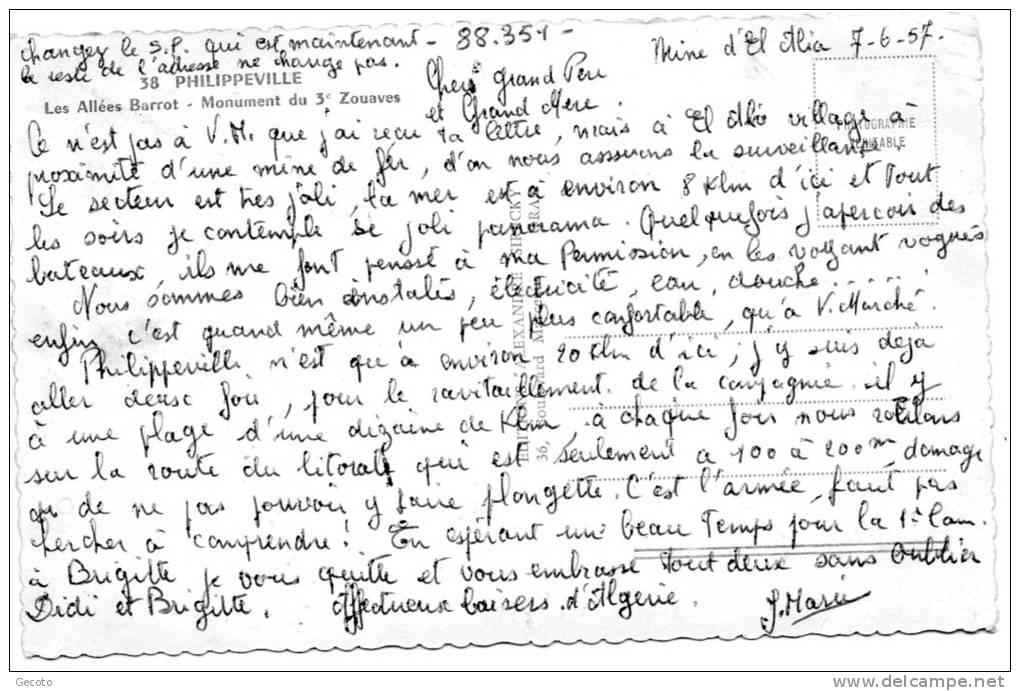 changez le S.P. qui est maintenant - 88.351 -
la reste de l'adresse ne change pas.
Mine d'El Alia 7-6-57.
38 PHILIPPEVILLE
Les Allées Barrot - Monument du 3e Zouaves
Chers grand Pere
et Grand Mere.
PHOTOGRAPHIE
VERITABLE
Ce n'est pas à V.M. que j'ai reçu ta lettre, mais à El Alia village à
proximité d'une mine de fer, d'on nous assurons la surveillance.
Le secteur est tres joli, la mer est à environ 8 Klm d'ici et Tout
les soirs je contemple se joli panorama. Quelquefois j'aperçoir des
bateaux, ils me font pensé à ma Permission, en les voyant vogués
Nous sommes bien instalés, électricité, eau, douche......
enfin c'est quand même un peu plus confortable, qu'à V. Marché.
Philippeville n'est qu'à environ 20 Klm d'ici, j'y suis déjà
aller deux fois, pour le ravitaillement de la compagnie. il y
à une plage d'une dizaine de Klm, à chaque fois nous roulons
sur la route du litorale qui est seulement a 100 à 200m, domage
que de ne pas pouvoir y faire plongette. C'est l'armée, faut pas
chercher à comprendre! En espérant un beau Temps pour la 1e Com.
à Brigitte je vous quitte et vous embrasse Tout deux sans oublier
Didi et Brigitte. Affectueux baisers d'Algerie. J. Marie
36, Boulevard
Gecoto
www.delcampe.net